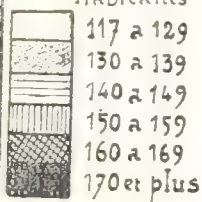 117 a 129
130 a 139
140 a 149
150 a 159
160 a 169
170 et plus